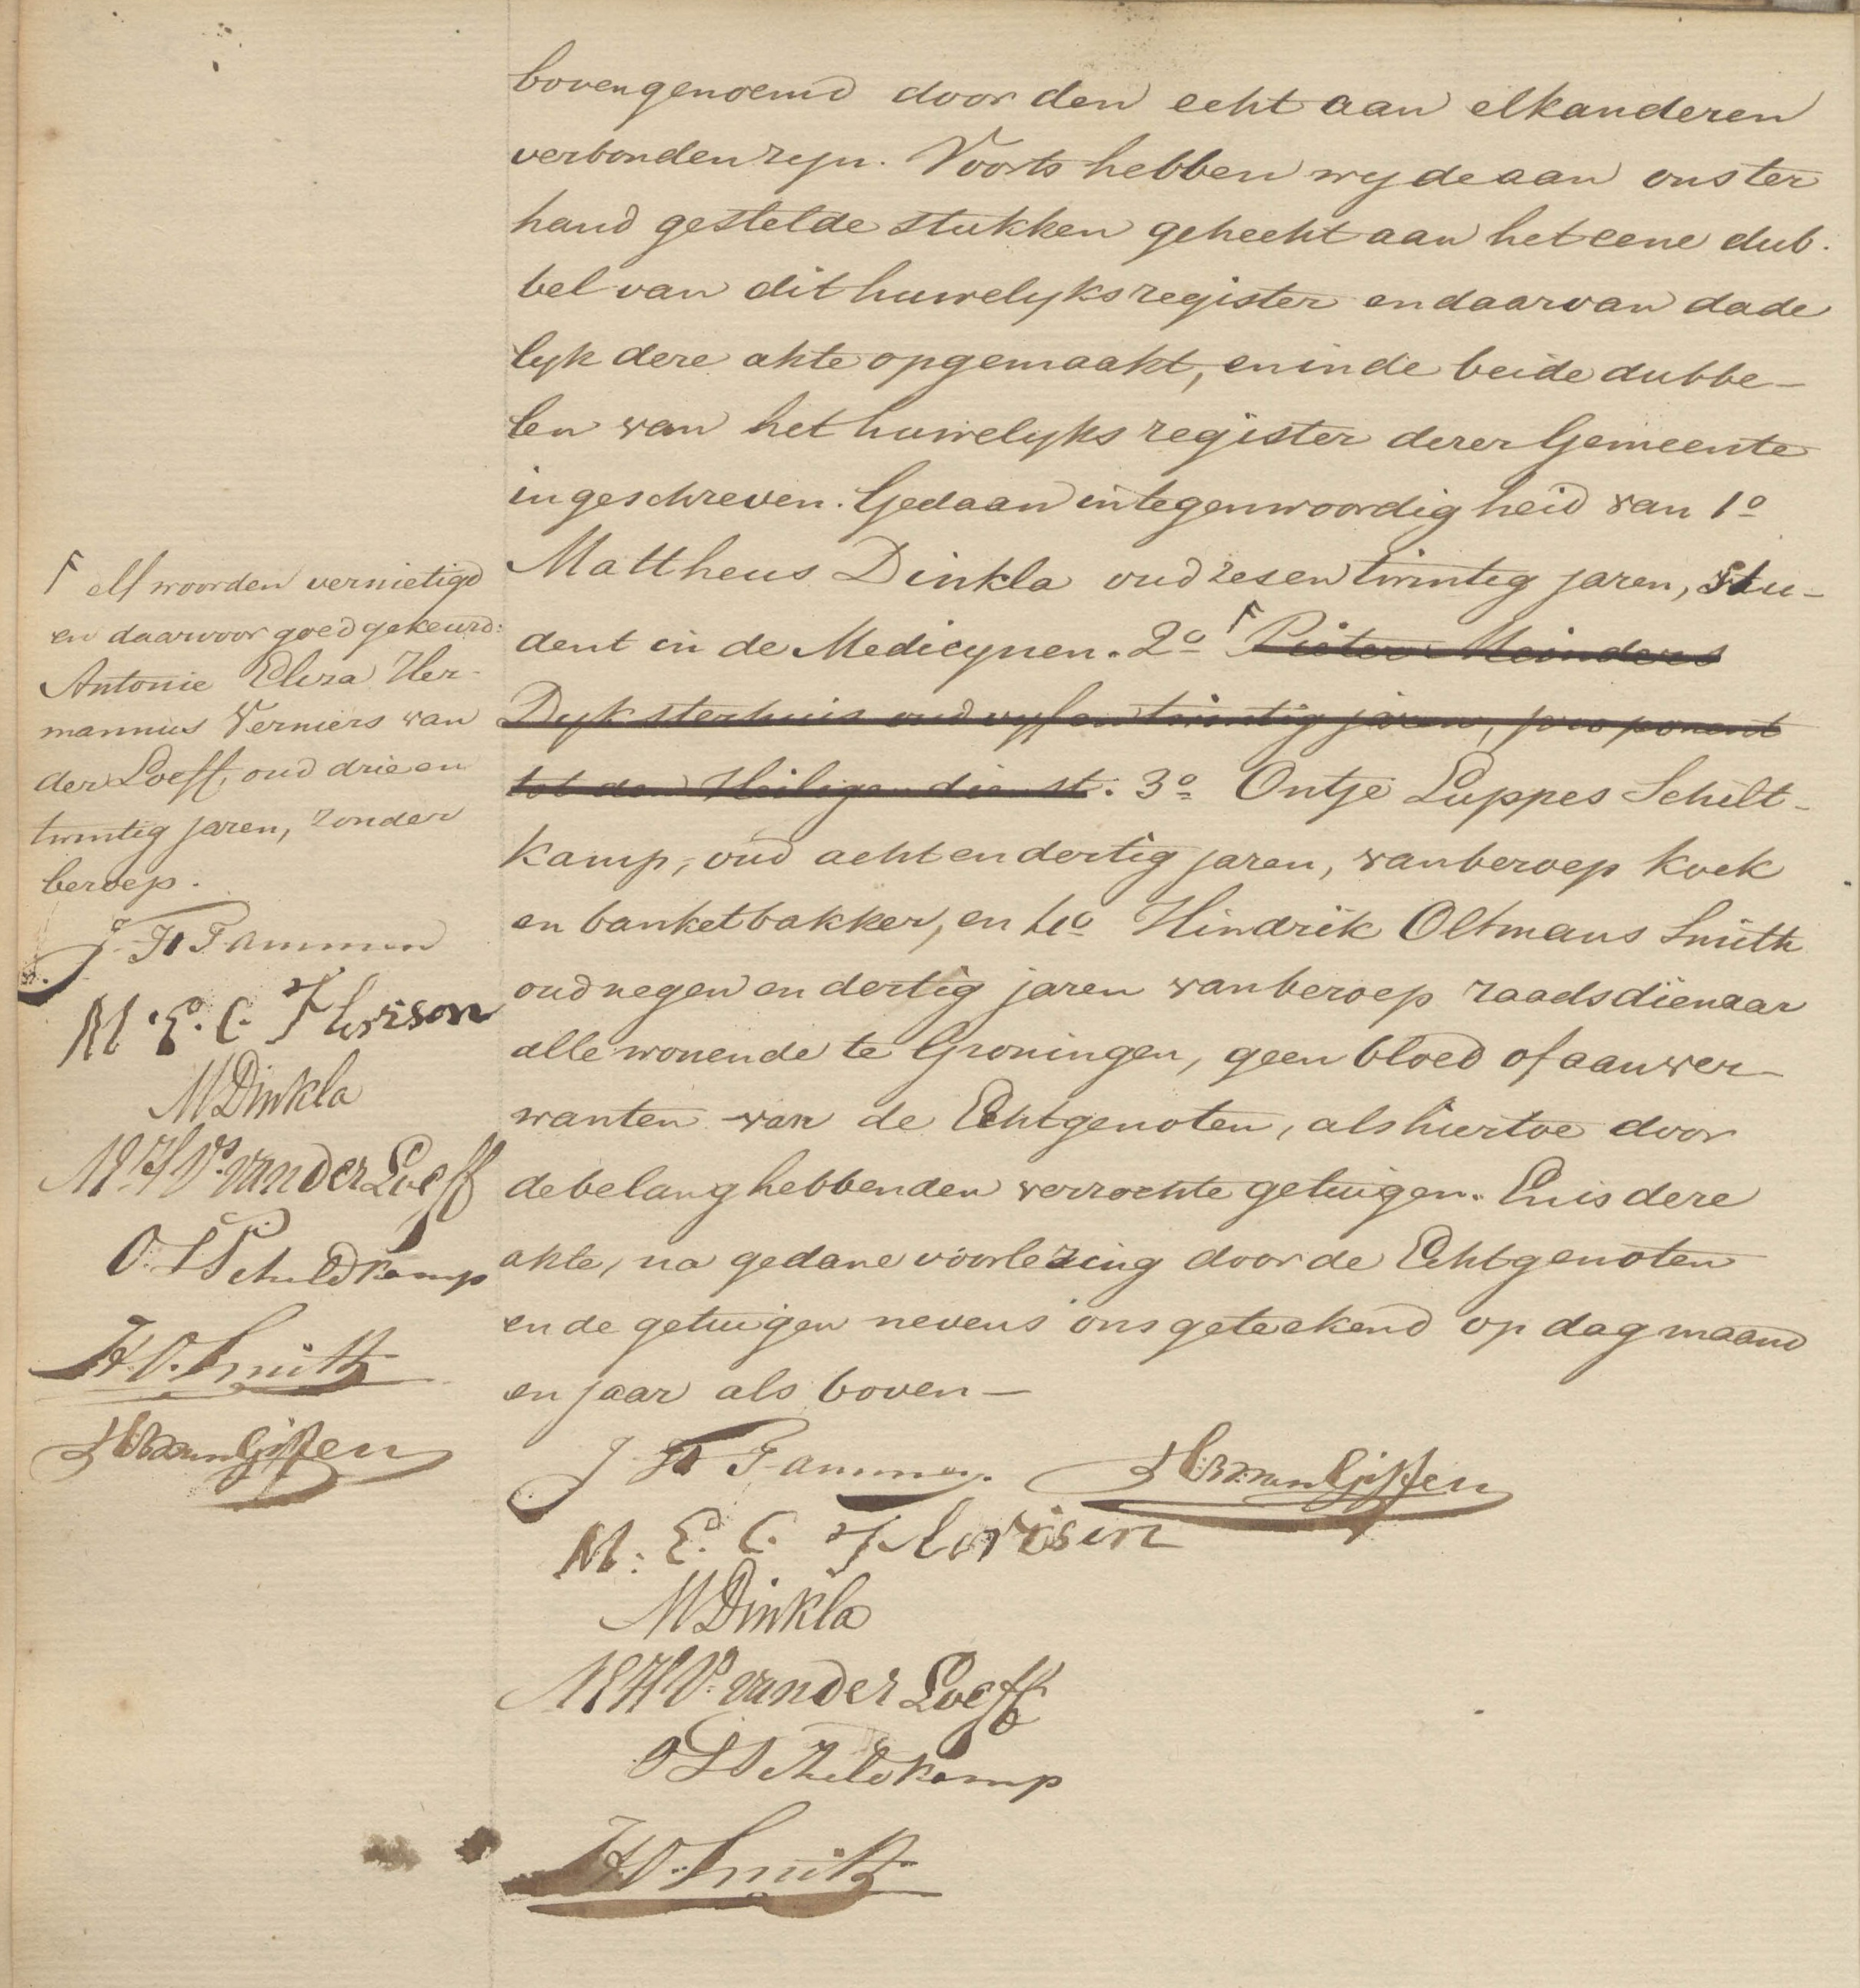 bovengenoemd door den echt aan elkanderen
verbonden zyn. Voorts hebben wy de aan ons ter
hand gestelde stukken gehecht aan het eene dub-
bel van dit huwelyks register en daarvan dade
lyk deze akte opgemaakt, en in de beide dubbe-
len van het huwelyks register dezer Gemeente
ingeschreven. Gedaan in tegenwoordigheid van 1o
Mattheus Dinkla oud zes en twintig jaren, stu-
dent in de Medicynen. 2o Γ Pieter Meinders
Dyksterhuis oud vyf en twintig jaren, proponent
tot den Heiligen dienst. 3o Ontje Luppes Schilt-
kamp, oud acht en dertig jaren, van beroep koek
en banketbakker, en 4o Hindrik Oltmans Smith
oud negen en dertig jaren van beroep raadsdienaar
alle wonende te Groningen, geen bloed of aanver-
wanten van de Echtgenoten, als hiertoe door
de belanghebbenden verzochte getuigen. En is deze
akte, na gedane voorlezing door de Echtgenoten
en de getuigen nevens ons geteekend op dag maand
en jaar als boven—
Γ elf woorden vernietigd
en daarvoor goedgekeurd:
Antonie Eliza Her-
mannus Verniers van
der Loeff, oud drie en
twintig jaren, zonder
beroep.
J. H. Tammen
M. E. C. Florison
M Dinkla
van der Loeff
O. L. Schildkamp
H O. Smith
van Giffen
J. H. Tammen
van Giffen
M. E. C. Florison
M Dinkla
van der Loeff
O L Schildkamp
H O. Smith